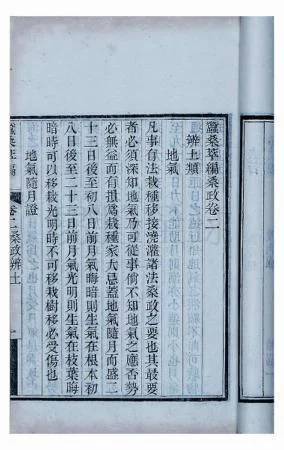 蠶桑萃編桑政卷二
辨土類
地氣
凡事有法栽種移接澆灌諸法桑政之要也其最要
者必須深知地氣乃可從事倘不知地氣之應否勢
必無益而有損爲栽種家大忌蓋地氣隨月而盛二
十三日後至初八日前月氣晦暗則生氣在根本初
八日後至二十三日前月氣光明則生氣在枝葉晦
暗時可以移栽光明時不可移栽樹移必受傷也
地氣隨月證
蠶桑萃編
卷二桑政辨土
一